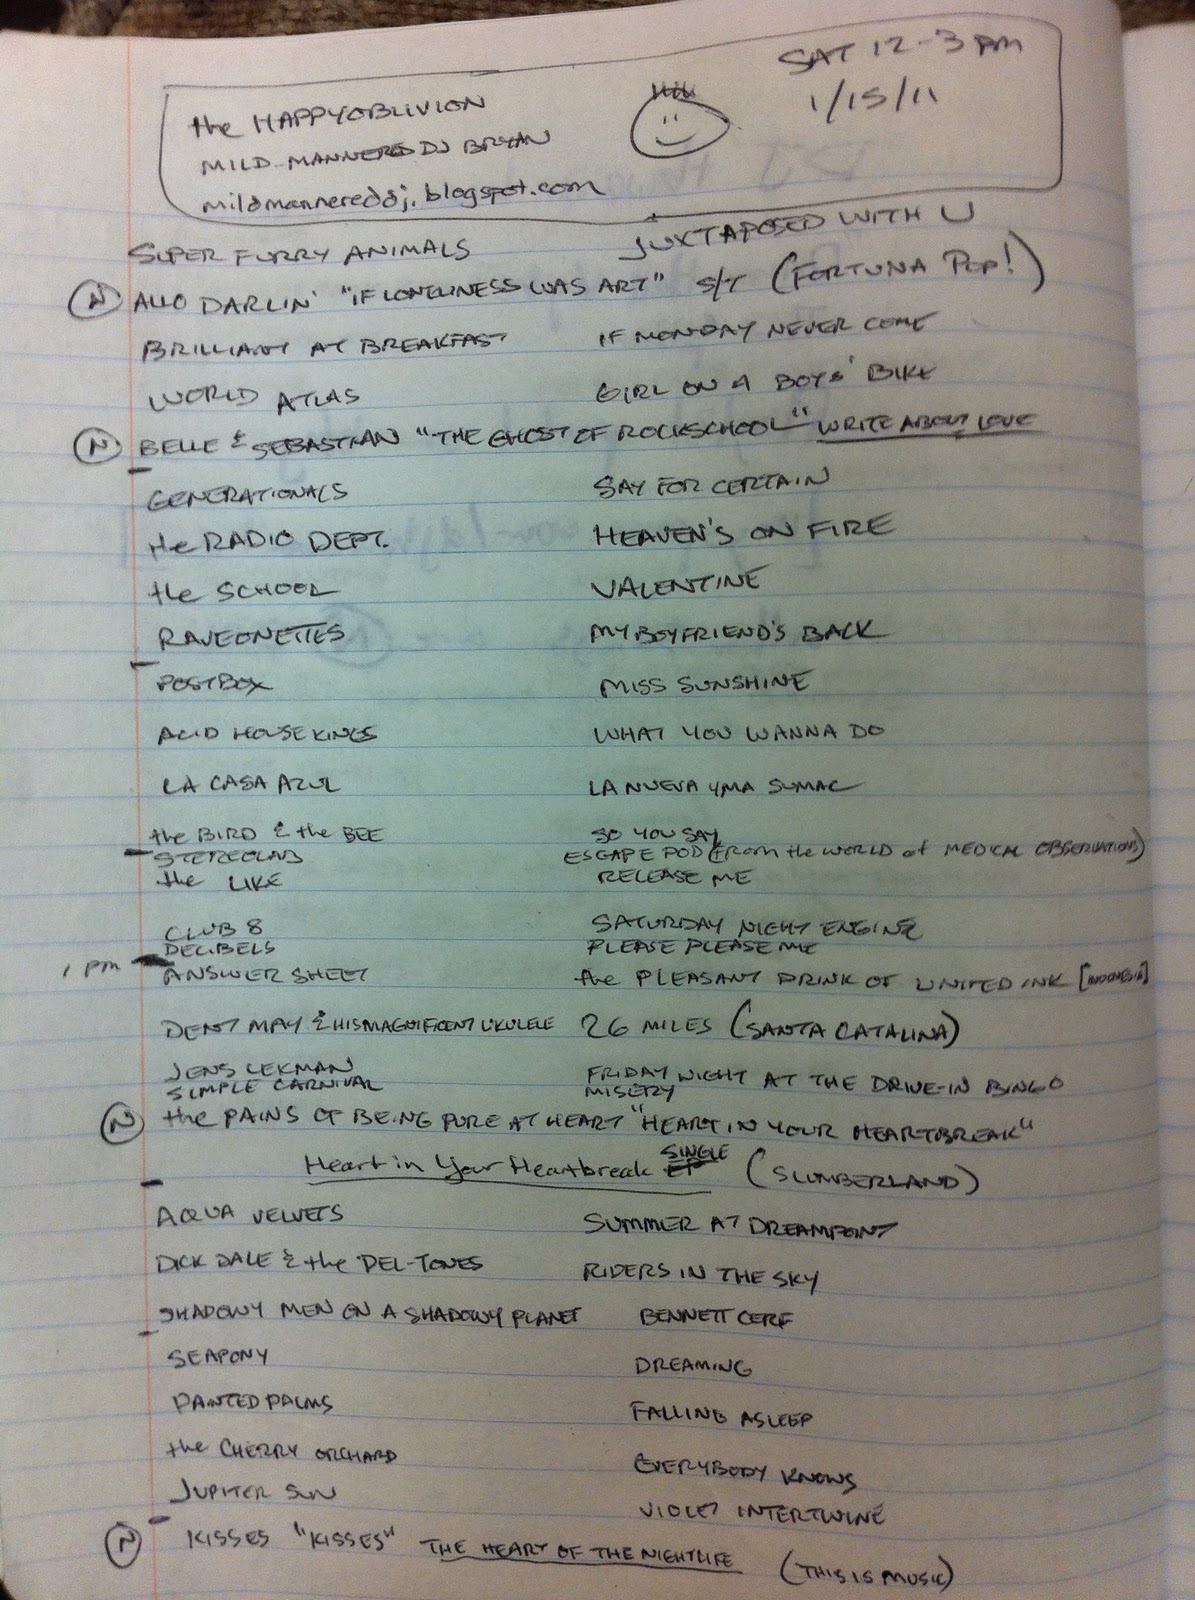 SAT 12-3 PM
1/15/11
the HAPPYOBLIVION
MILD-MANNERED DJ BRYAN
mildmannereddj.blogspot.com
SUPER FURRY ANIMALS JUXTAPOSED WITH U
(N) ALLO DARLIN' "IF LONELINESS WAS ART" S/T (FORTUNA POP!)
BRILLIANT AT BREAKFAST IF MONDAY NEVER COME
WORLD ATLAS GIRL ON A BOYS' BIKE
(N) BELLE & SEBASTIAN "THE GHOST OF ROCKSCHOOL" WRITE ABOUT LOVE
GENERATIONALS SAY FOR CERTAIN
the RADIO DEPT. HEAVEN'S ON FIRE
the SCHOOL VALENTINE
RAVEONETTES MY BOYFRIEND'S BACK
POSTBOX MISS SUNSHINE
ACID HOUSE KINGS WHAT YOU WANNA DO
LA CASA AZUL LA NUEVA YMA SUMAC
the BIRD & the BEE SO YOU SAY
STEREOLAB ESCAPE POD (from the WORLD of MEDICAL OBSERVATIONS)
the LIKE RELEASE ME
CLUB 8 SATURDAY NIGHT ENGINE
DECIBELS PLEASE PLEASE ME
1 PM ANSWER SHEET the PLEASANT DRINK OF UNITED INK [INDONESIA]
DENT MAY & HIS MAGNIFICENT UKULELE 26 MILES (SANTA CATALINA)
JENS LEKMAN FRIDAY NIGHT AT THE DRIVE-IN BINGO
SIMPLE CARNIVAL MISERY
(N) the PAINS OF BEING PURE AT HEART "HEART IN YOUR HEARTBREAK"
Heart in Your Heartbreak EP SINGLE (SLUMBERLAND)
AQUA VELVETS SUMMER AT DREAMPOINT
DICK DALE & the DEL-TONES RIDERS IN THE SKY
SHADOWY MEN ON A SHADOWY PLANET BENNETT CERF
SEAPONY DREAMING
PAINTED PALMS FALLING ASLEEP
the CHERRY ORCHARD EVERYBODY KNOWS
JUPITER SUN VIOLET INTERTWINE
(N) KISSES "KISSES" THE HEART OF THE NIGHTLIFE (THIS IS MUSIC)